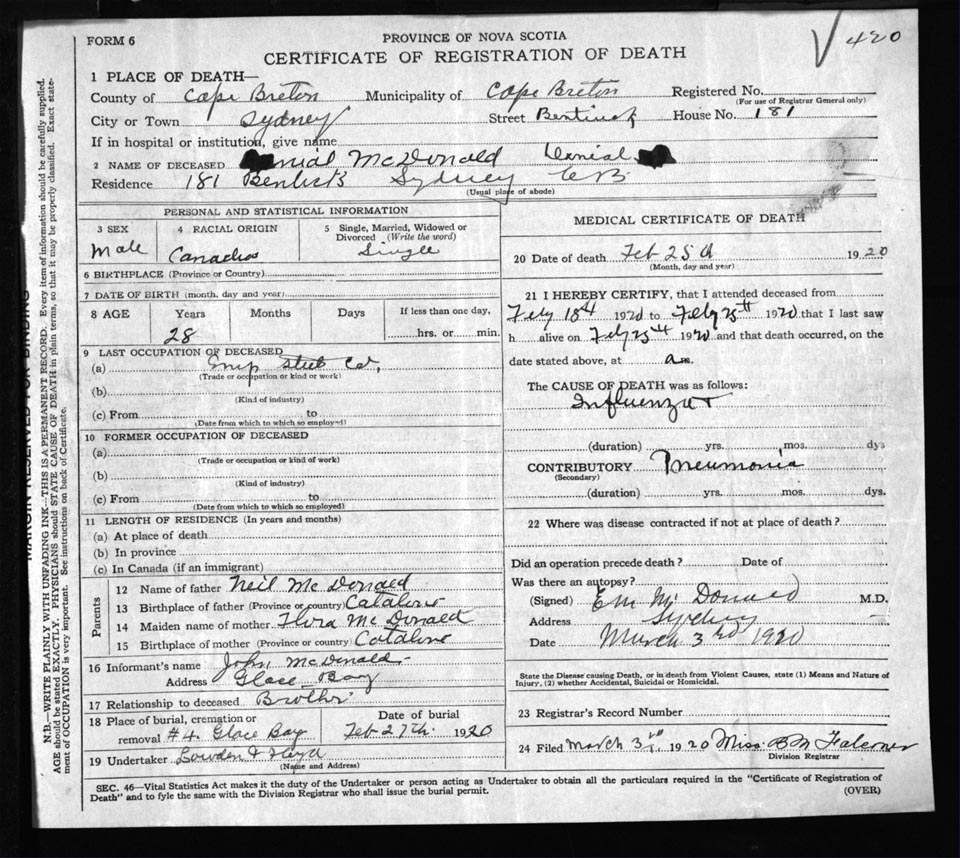 FORM 6
PROVINCE OF NOVA SCOTIA
CERTIFICATE OF REGISTRATION OF DEATH
420
1 PLACE OF DEATH—
County of Cape Breton Municipality of Cape Breton Registered No.
(For use of Registrar General only)
City or Town Sydney Street House No. 181
If in hospital or institution, give name
2 NAME OF DECEASED McDonald Denial
Residence 181 Sydney CB
(Usual place of abode)
PERSONAL AND STATISTICAL INFORMATION
3 SEX Male
4 RACIAL ORIGIN
5 Single, Married, Widowed or Divorced (Write the word)
Single
6 BIRTHPLACE (Province or Country)
7 DATE OF BIRTH (month, day and year)
8 AGE Years Months Days If less than one day,
28 hrs. or min.
9 LAST OCCUPATION OF DECEASED
(a) Steel Co,
(Trade or occupation or kind or work)
(b)
(Kind of industry)
(c) From to
(Date from which to which so employed)
10 FORMER OCCUPATION OF DECEASED
(a)
(Trade or occupation or kind of work)
(b)
(Kind of industry)
(c) From to
(Date from which to which so employed)
11 LENGTH OF RESIDENCE (In years and months)
(a) At place of death
(b) In province
(c) In Canada (if an immigrant)
Parents
12 Name of father Neil McDonald
13 Birthplace of father (Province or country)
14 Maiden name of mother Flora McDonald
15 Birthplace of mother (Province or country)
16 Informant's name John McDonald
Address Glace Bay
17 Relationship to deceased Brother
18 Place of burial, cremation or removal #4 Glace Bay
Date of burial
Feb 27th 1920
19 Undertaker Lowden & Floyd
(Name and Address)
MEDICAL CERTIFICATE OF DEATH
20 Date of death Feb 25th 1920
(Month, day and year)
21 I HEREBY CERTIFY, that I attended deceased from
Feby 18th 1920 to Feby 25th 1920 that I last saw
h alive on Feby 25th 1920 and that death occurred, on the
date stated above, at a m.
The CAUSE OF DEATH was as follows:
Influenza +
(duration) yrs. mos. dys
CONTRIBUTORY Pneumonia
(Secondary)
(duration) yrs. mos. dys.
22 Where was disease contracted if not at place of death?
Did an operation precede death? Date of
Was there an autopsy?
(Signed) E M McDonald M.D.
Address Sydney
Date March 3rd 1920
State the Disease causing Death, or in death from Violent Causes, state (1) Means and Nature of
Injury, (2) whether Accidental, Suicidal or Homicidal.
23 Registrar's Record Number
24 Filed March 3rd 1920 Miss. Falconer
Division Registrar
SEC. 46—Vital Statistics Act makes it the duty of the Undertaker or person acting as Undertaker to obtain all the particulars required in the "Certificate of Registration of
Death" and to fyle the same with the Division Registrar who shall issue the burial permit.
(OVER)
MARGIN RESERVED FOR BINDING
N.B.—WRITE PLAINLY WITH UNFADING INK—THIS IS A PERMANENT RECORD. Every item of information should be carefully supplied.
AGE should be stated EXACTLY. PHYSICIANS should STATE CAUSE OF DEATH in plain terms, so that it may be properly classified. Exact statement of OCCUPATION is very important. See instructions on back of Certificate.